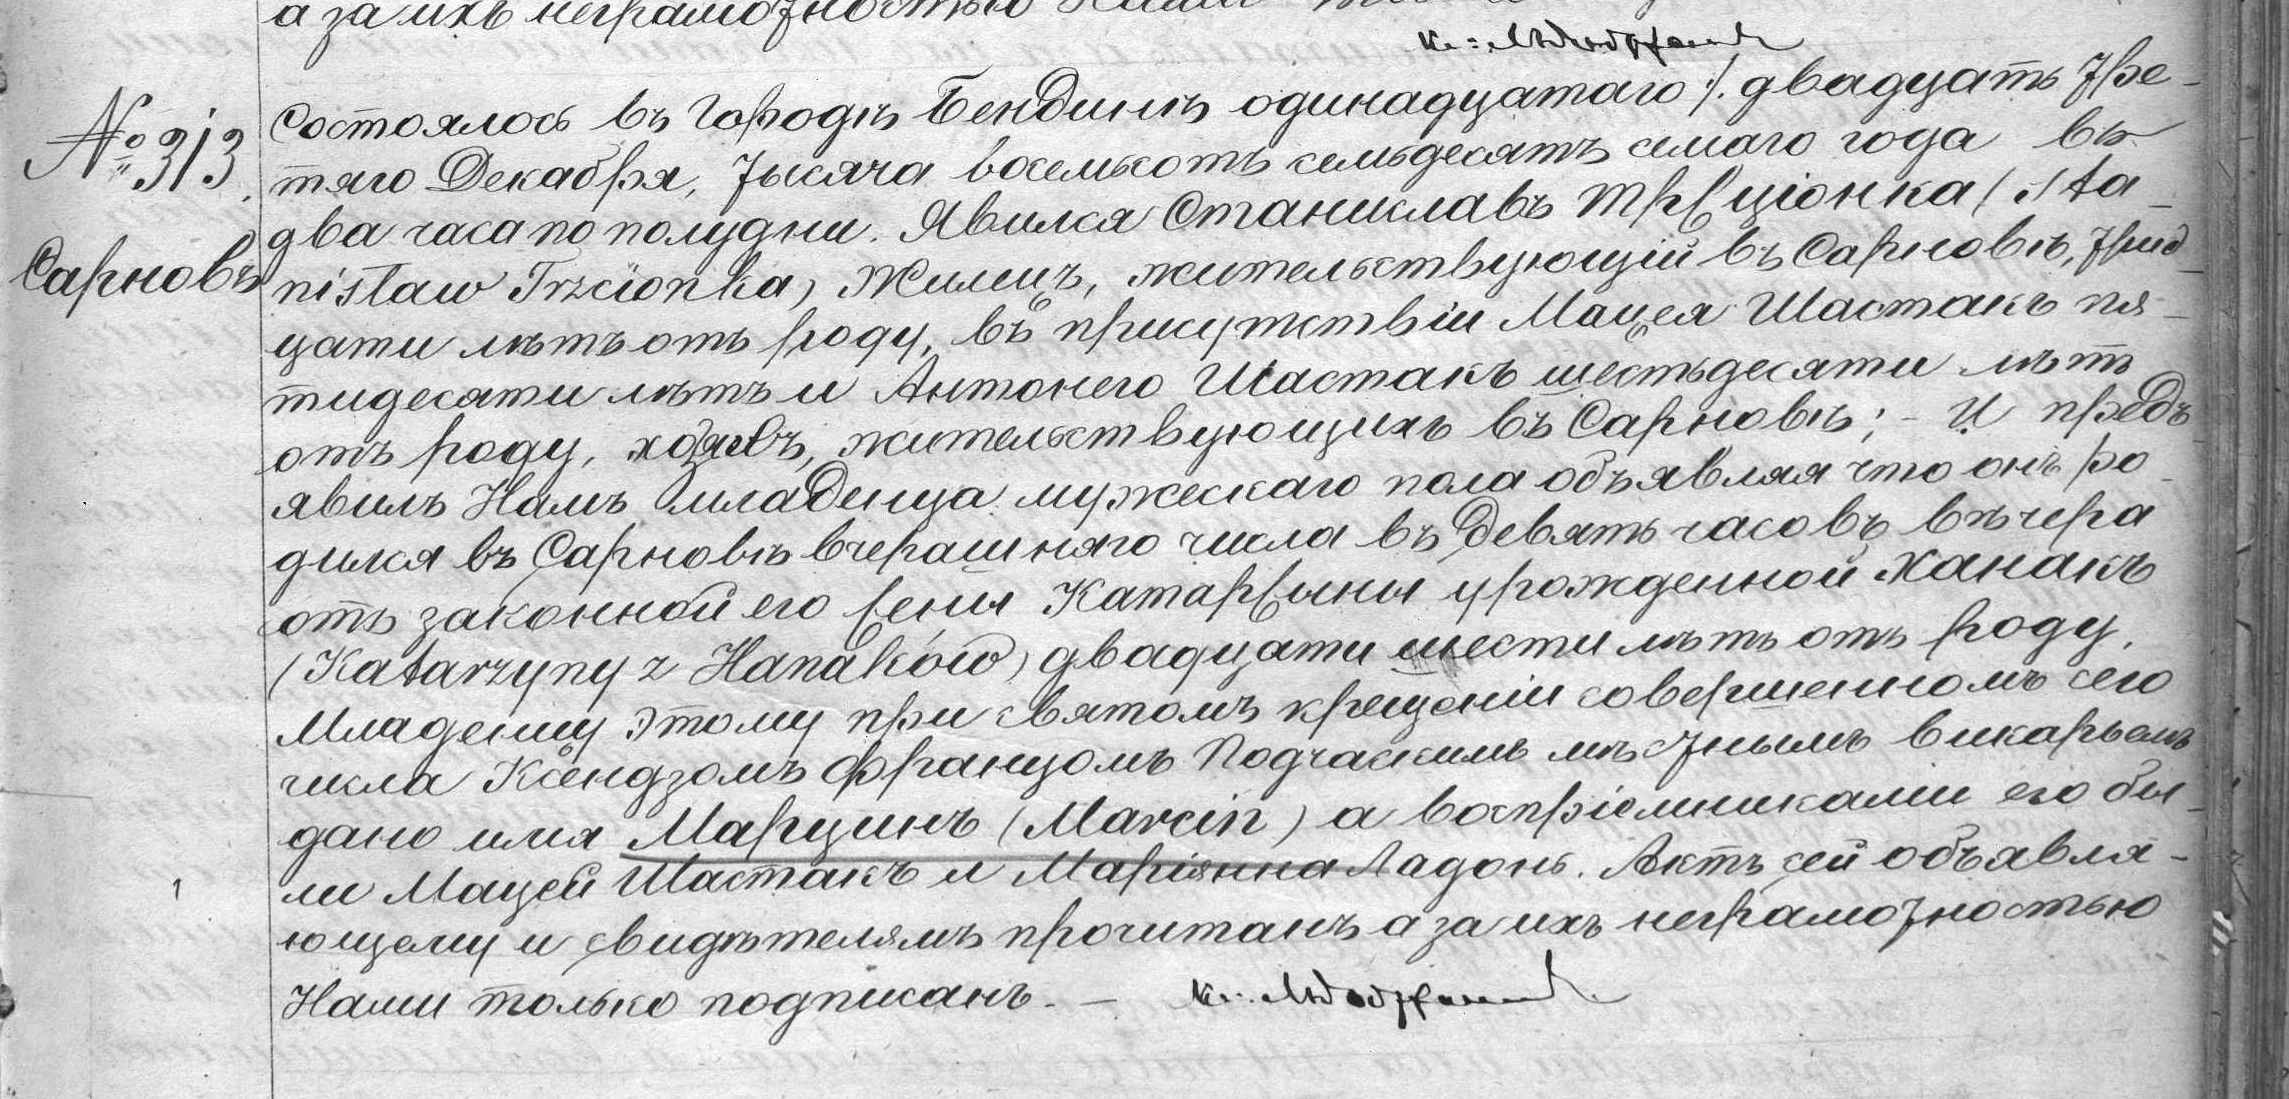 а за ихъ неграмотностью Нами
№ 313.
Сарновъ
Состоялось въ Городѣ Бендинѣ одинадцатаго /. двадцать тре-
тяго Декабря, тысяча восемьсотъ семьдесятъ семаго года въ
два часа по полудни. Явился Станиславъ Трżціонка (Sta-
nisław Trzcionka) жилецъ, жительствующій въ Сарновѣ, трид-
цати лѣтъ отъ роду, въ присутствіи Мацея Шастакъ пя-
тидесяти лѣтъ и Антонего Шастакъ шестьдесяти лѣтъ
отъ роду, жительствующихъ въ Сарновѣ; - И предъ
явилъ Намъ младенца мужескаго пола объявляя что онъ ро-
дился въ Сарновѣ вчерашняго числа въ девять часовъ вѣчера
отъ законной его жены Катарżыны урожденной Ханакъ
(Katarzyny z Hanaków) двадцати шести лѣтъ отъ роду.
Младенцу этому при святомъ крещеніи совершенномъ сего
числа Ксендзомъ Францомъ Подчаскимъ мѣстнымъ викарьемъ
дано имя Марцинъ (Marcin) а воспріемниками его бы-
ли Мацей Шастакъ и Маріянна Ладонь. Актъ сей объявля-
ющему и свидѣтелямъ прочитанъ а за ихъ неграмотностью
Нами только подписанъ. -